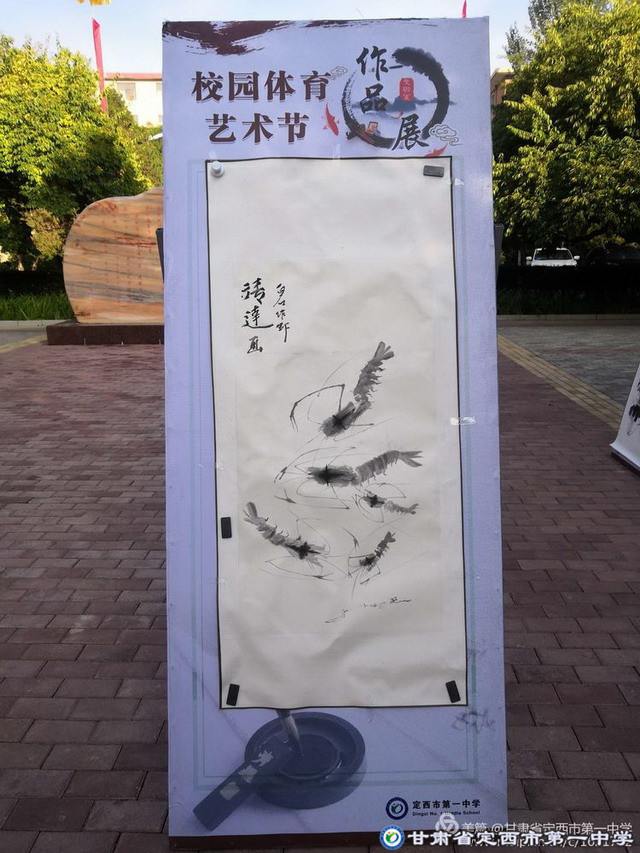 校园体育
艺术节
作品展
靖达画
定西市第一中学
Dingxi No.1 Middle School
美篇 @甘肃省定西市第一中学
甘肃省定西市第一中学